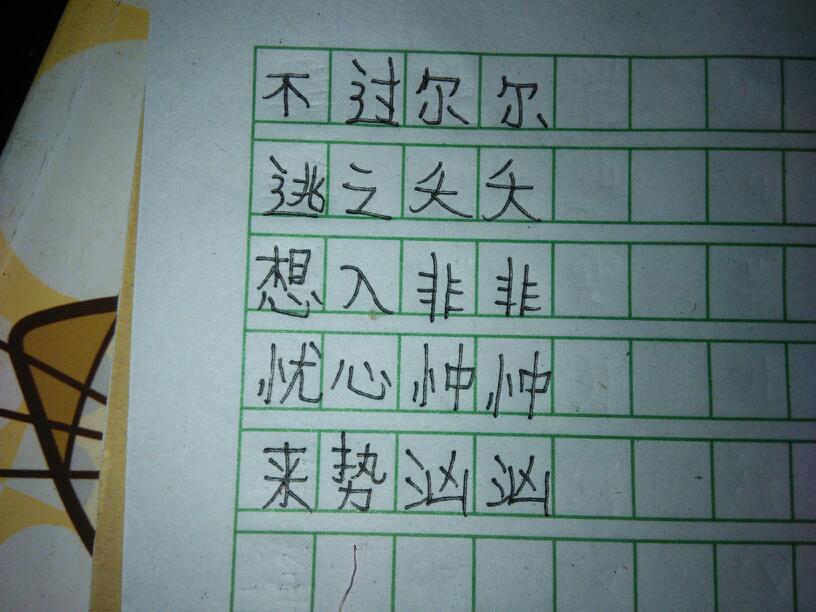 不过尔尔
逃之夭夭
想入非非
忧心忡忡
来势汹汹